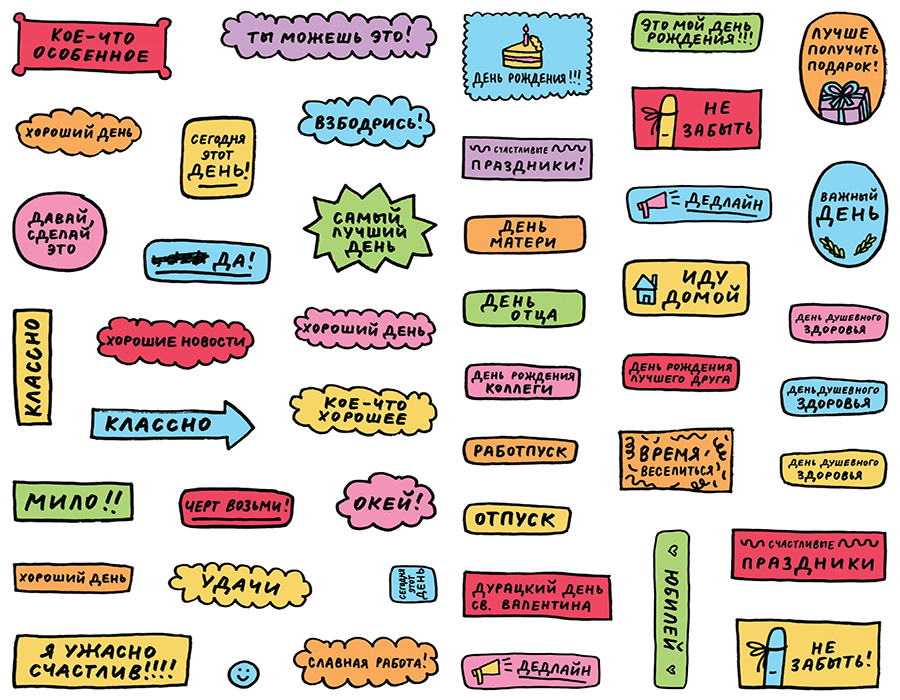 КОЕ-ЧТО
ОСОБЕННОЕ
ТЫ МОЖЕШЬ ЭТО!
ХОРОШИЙ ДЕНЬ
СЕГОДНЯ
ЭТОТ
ДЕНЬ!
ВЗБОДРИСЬ!
ДАВАЙ,
СДЕЛАЙ
ЭТО
ДА!
САМЫЙ
ЛУЧШИЙ
ДЕНЬ
КЛАССНО
ХОРОШИЕ НОВОСТИ
ХОРОШИЙ ДЕНЬ
КЛАССНО
КОЕ-ЧТО
ХОРОШЕЕ
МИЛО!!
ЧЕРТ ВОЗЬМИ!
ОКЕЙ!
ХОРОШИЙ ДЕНЬ
УДАЧИ
СЕГОДНЯ
ЭТОТ
ДЕНЬ
Я УЖАСНО
СЧАСТЛИВ!!!!
СЛАВНАЯ РАБОТА!
ДЕНЬ РОЖДЕНИЯ!!!
СЧАСТЛИВЫЕ
ПРАЗДНИКИ!
ДЕНЬ
МАТЕРИ
ДЕНЬ
ОТЦА
ДЕНЬ РОЖДЕНИЯ
КОЛЛЕГИ
РАБОТПУСК
ОТПУСК
ДУРАЦКИЙ ДЕНЬ
СВ. ВАЛЕНТИНА
ДЕДЛАЙН
ЭТО МОЙ ДЕНЬ
РОЖДЕНИЯ!!!
НЕ
ЗАБЫТЬ
ДЕДЛАЙН
ИДУ
ДОМОЙ
ДЕНЬ РОЖДЕНИЯ
ЛУЧШЕГО ДРУГА
ВРЕМЯ
ВЕСЕЛИТЬСЯ
ЮБИЛЕЙ
ЛУЧШЕ
ПОЛУЧИТЬ
ПОДАРОК!
ВАЖНЫЙ
ДЕНЬ
ДЕНЬ ДУШЕВНОГО
ЗДОРОВЬЯ
ДЕНЬ ДУШЕВНОГО
ЗДОРОВЬЯ
ДЕНЬ ДУШЕВНОГО
ЗДОРОВЬЯ
СЧАСТЛИВЫЕ
ПРАЗДНИКИ
НЕ
ЗАБЫТЬ!